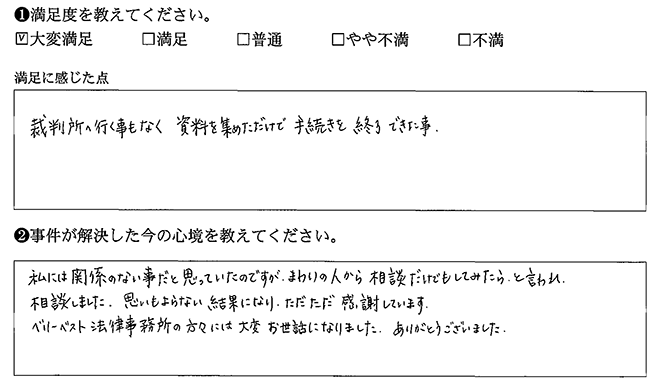 ❶満足度を教えてください。
☑大変満足 □満足 □普通 □やや不満 □不満
満足に感じた点
裁判所へ行く事もなく 資料を集めただけで 手続きを 終る できた事.
❷事件が解決した今の心境を教えてください。
私には関係のない事だと思っていたのですが.まわりの人から 相談だけでもしてみたら.と言われ.
相談しました. 思いもよらない結果になり.ただただ 感謝しています.
ベリーベスト法律事務所の方々には大変 お世話になりました. ありがとうございました.